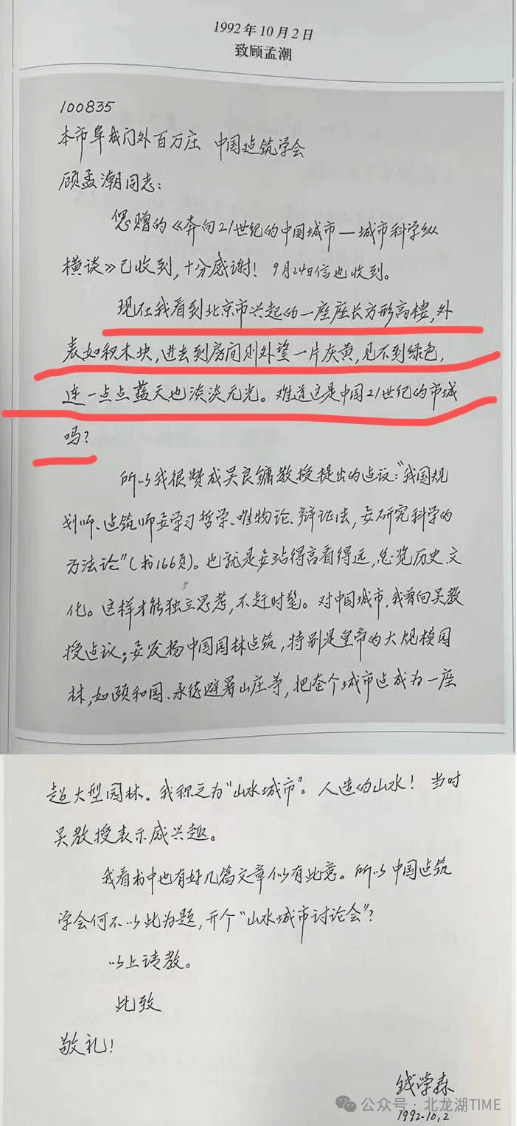 1992年10月2日
致顾孟潮
100835
本市阜成门外百万庄 中国建筑学会
顾孟潮同志：
您赠的《奔向21世纪的中国城市—城市科学纵
横谈》已收到，十分感谢！9月24日信也收到。
现在我看到北京市兴起的一座座长方形高楼，外
表如积木块，进去到房间则外望一片灰黄，见不到绿色，
连一点点蓝天也淡淡无光。难道这是中国21世纪的市城
吗？
所以我很赞成吴良镛教授提出的建议：“我国规
划师、建筑师要学习哲学、唯物论、辩证法，要研究科学的
方法论”（书166页）。也就是要站得高看得远，总览历史、文
化。这样才能独立思考，不赶时髦。对中国城市，我曾向吴教
授建议：要发扬中国园林建筑，特别是皇帝的大规模园
林，如颐和园、承德避暑山庄等，把整个城市建成为一座
超大型园林。我称之为“山水城市”。人造的山水！当时
吴教授表示感兴趣。
我看书中也有好几篇文章似有此意。所以中国建筑
学会何不以此为题，开个“山水城市讨论会”？
以上请教。
此致
敬礼！
钱学森
1992.10.2
公众号·北龙湖TIME